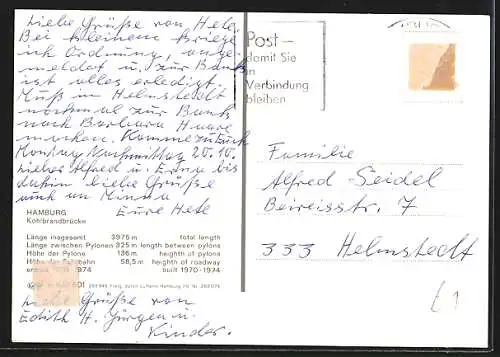 Liebe Grüße von Hete.
Bei kleinem Briege
ich Ordnung, ange-
meldet u. zur Bank
ist alles erledigt.
Muß in Helmstedt
nochmal zur Bank
nach Barbara Haare
machen. Komme zu Euch
Montag Nachmittag 20.10.
Liebes Alfred u. Erna bis
dahin liebe Grüße
auch an Minna
Eure Hete
HAMBURG
Köhlbrandbrücke
Länge insgesamt 3975 m total length
Länge zwischen Pylonen 325 m length between pylons
Höhe der Pylone 136 m heighth of pylons
Höhe der Fahrbahn 58,5 m heighth of roadway
1974 built 1970-1974
Liebe Grüße von
Edith H. Jürgen u.
Kinder.
Post –
damit Sie
in
Verbindung
bleiben
Familie
Alfred Seidel
Beireisstr. 7
333 Helmstedt